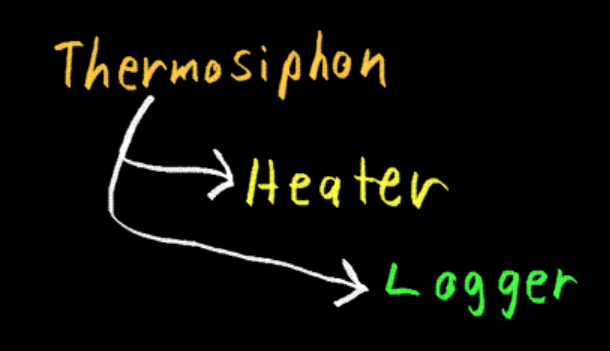 Thermosiphon
Heater
Logger